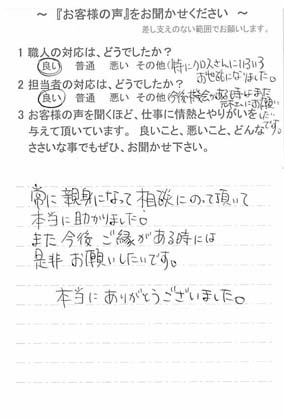 ～ 『お客様の声』をお聞かせください ～
差し支えのない範囲でお願いします。
1 職人の対応は、どうでしたか？
良い 普通 悪い その他(特にクロスさんにいろいろ
お世話になりました。
2 担当者の対応は、どうでしたか？
良い 普通 悪い その他(今後機会がある時はまた
お願い
したいです。
3 お客様の声を聞くほど、仕事に情熱とやりがいを
与えて頂いています。 良いこと、悪いこと、どんな
ささいな事でもぜひ、お聞かせ下さい。
常に親身になって相談にのって頂いて
本当に助かりました。
また今後ご縁がある時には
是非お願いしたいです。
本当にありがとうございました。